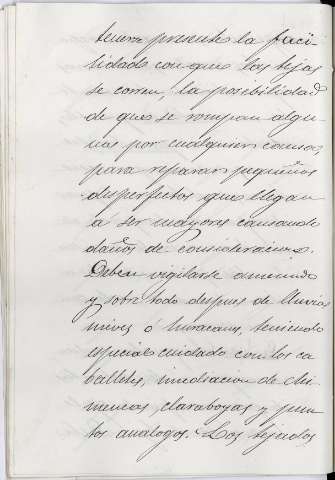 tener presente la faci-
lidad con que las tejas
se corren, la posibilidad
de que se rompan algu-
nas por cualquier causa,
para reparar pequeños
desperfectos que llegan
á ser mayores causando
daños de consideracion.
Deben vigilarse á menudo
y sobre todo despues de lluvias
nieves ó huracanes, teniendo
especial cuidado con los ca
balletes, inmediacion de chi
meneas, claraboyas y pun
tos analogos. Los tejados